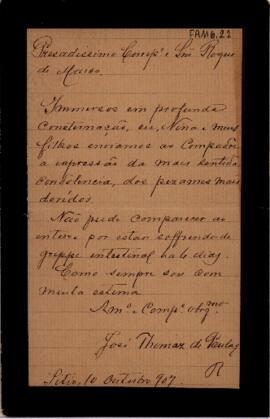 FAM6,22
Presadissimo Comp.e e Snr Roque
de Marco.
Immersos em profunda
consternação, eu, Nina e meus
filhos enviamos ao Compadre
a expressão da mais sentida
condolencia, dos pezames mais
doridos.
Não pude comparecer ao
enterro por estar soffrendo de
grippe intestinal ha 10 dias.
Como sempre sou com
muita estima
Am.o e Comp.e obrg.mo
José Thomaz de
Sitio, 10 Outubro 907.